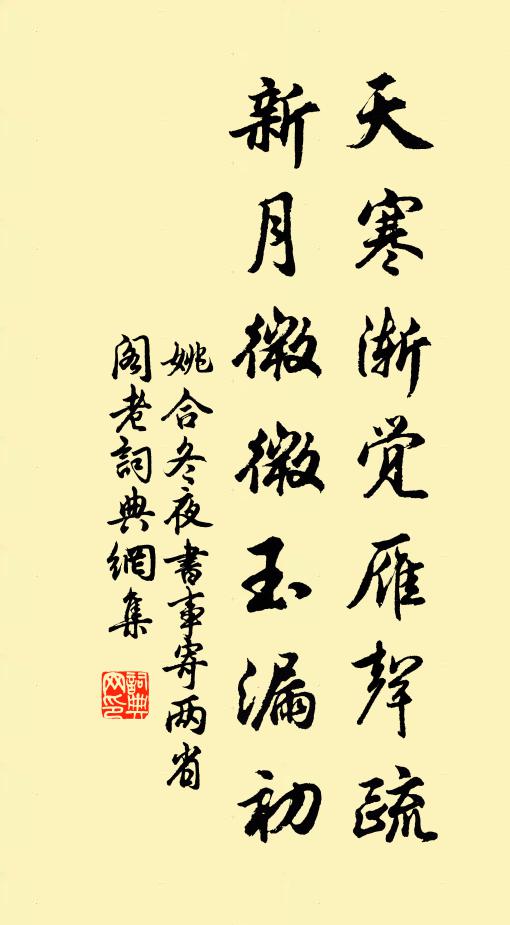 天寒渐觉雁聲疏
新月微微玉漏初
姚合冬夜書事寄两省
阁老詞典網集
詞典网印